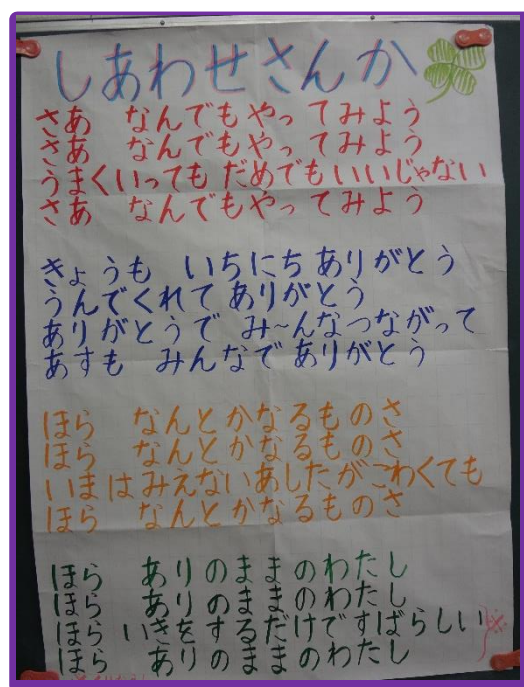 しあわせさんか
さあ なんでもやってみよう
さあ なんでもやってみよう
うまくいっても だめでもいいじゃない
さあ なんでもやってみよう
きょうも いちにち ありがとう
うんでくれて ありがとう
ありがとうで み〜んなつながって
あすも みんなで ありがとう
ほら なんとかなるものさ
ほら なんとかなるものさ
いまはみえないあしたがこわくても
ほら なんとかなるものさ
ほら ありのままのわたし
ほら ありのままのわたし
ほら いきをするだけですばらしい ※
ほら ありのままのわたし